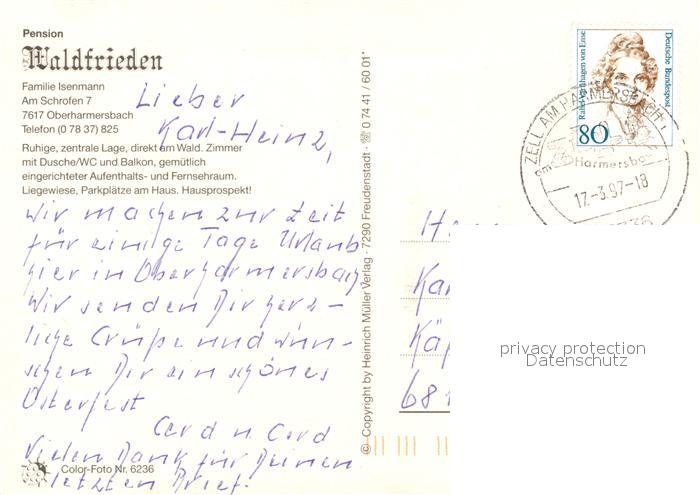 Pension
Waldfrieden
Familie Isenmann
Am Schrofen 7
7617 Oberharmersbach
Telefon (0 78 37) 825
Ruhige, zentrale Lage, direkt am Wald. Zimmer
mit Dusche/WC und Balkon, gemütlich
eingerichteter Aufenthalts- und Fernsehraum.
Liegewiese, Parkplätze am Haus. Hausprospekt!
Lieber
Karl-Heinz,
Wir machen zur Zeit
für einige Tage Urlaub
hier in Oberharmersbach
Wir senden Dir herz-
liche Grüße und wün-
schen Dir ein schönes
Osterfest
Gerd u. Gerd
Vielen Dank für Deinen
letzten Brief.
Color-Foto Nr. 6236
© Copyright by Heinrich Müller Verlag · 7290 Freudenstadt · ☏ 0 74 41 / 60 01*
Rahel Varnhagen von Ense
Deutsche Bundespost
80
ZELL AM HARMERSBACH 1
am Harmersbach
17.-3.97-18
7736
H
Kar
Käp
681
privacy protection
Datenschutz